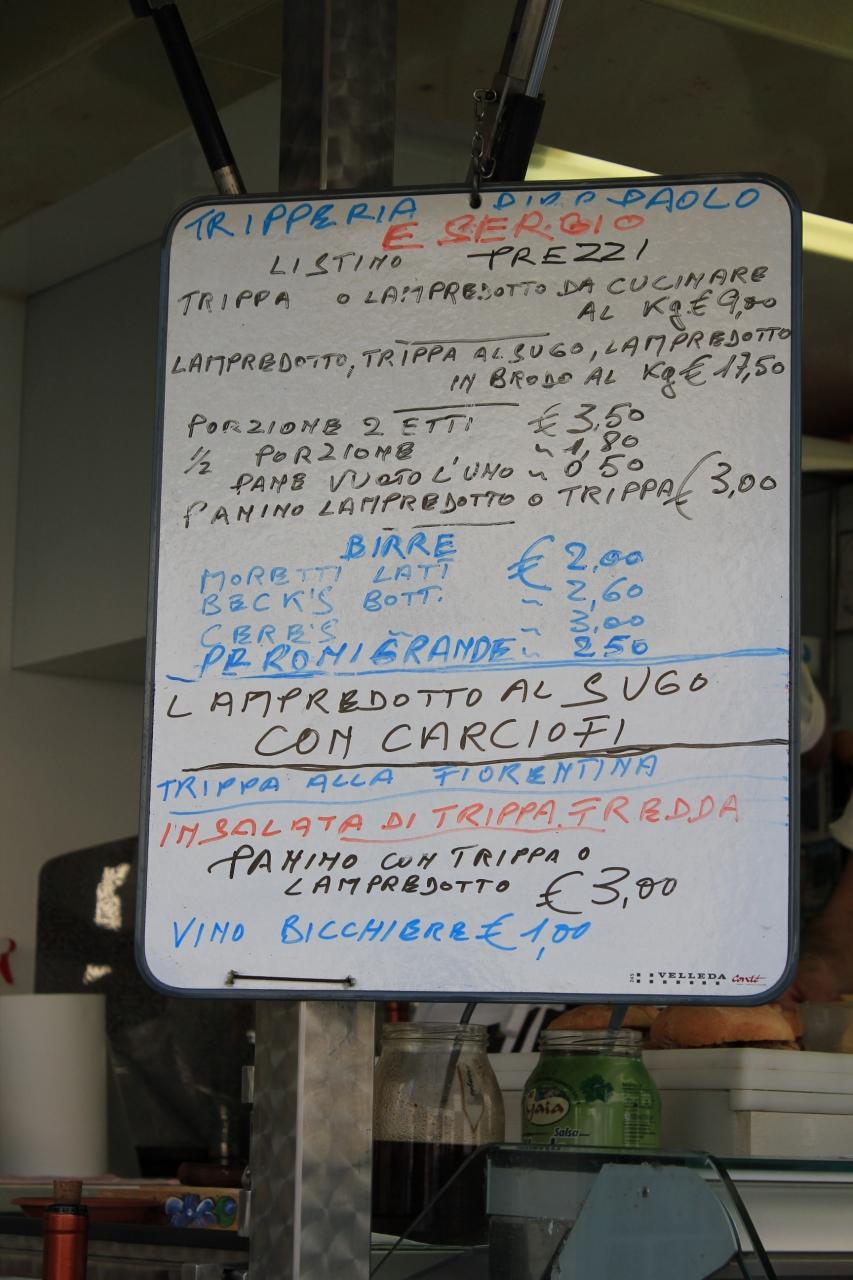 TRIPPERIA DI PAOLO
E SERGIO
LISTINO PREZZI
TRIPPA O LAMPREDOTTO DA CUCINARE
AL Kg € 9,00
LAMPREDOTTO, TRIPPA AL SUGO, LAMPREDOTTO
IN BRODO AL Kg € 17,50
PORZIONE 2 ETTI € 3,50
1/2 PORZIONE ~ 1,80
PANE VUOTO L'UNO ~ 0 50
PANINO LAMPREDOTTO O TRIPPA € 3,00
BIRRE
MORETTI LATT € 2,00
BECK'S BOTT. ~ 2,60
CERE'S ~ ~ 3,00
PERONI GRANDE ~ 250
LAMPREDOTTO AL SUGO
CON CARCIOFI
TRIPPA ALLA FIORENTINA
INSALATA DI TRIPPA FREDDA
PANINO CON TRIPPA O
LAMPREDOTTO € 3,00
VINO BICCHIERE € 1,00
VELLEDA Conté
Gaia
Salsa